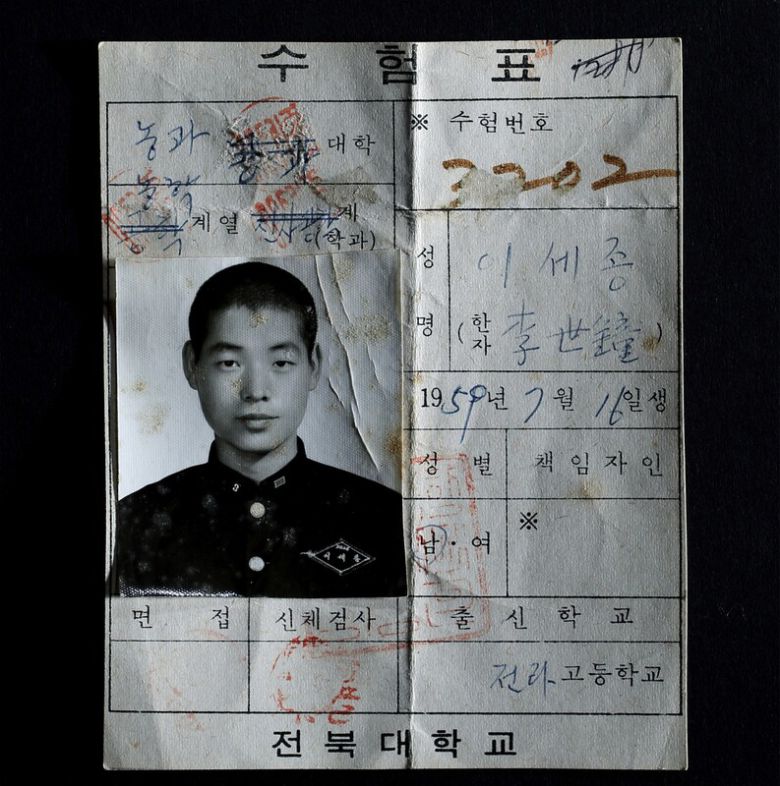 수험표
농과 대학
※ 수험번호
3202
농학
계열 계
(학과)
성명 이세종
(한자 李世鐘)
1959년 7월 16일생
성별 책임자인
남·여 ※
면접 신체검사 출신학교
전라고등학교
전북대학교